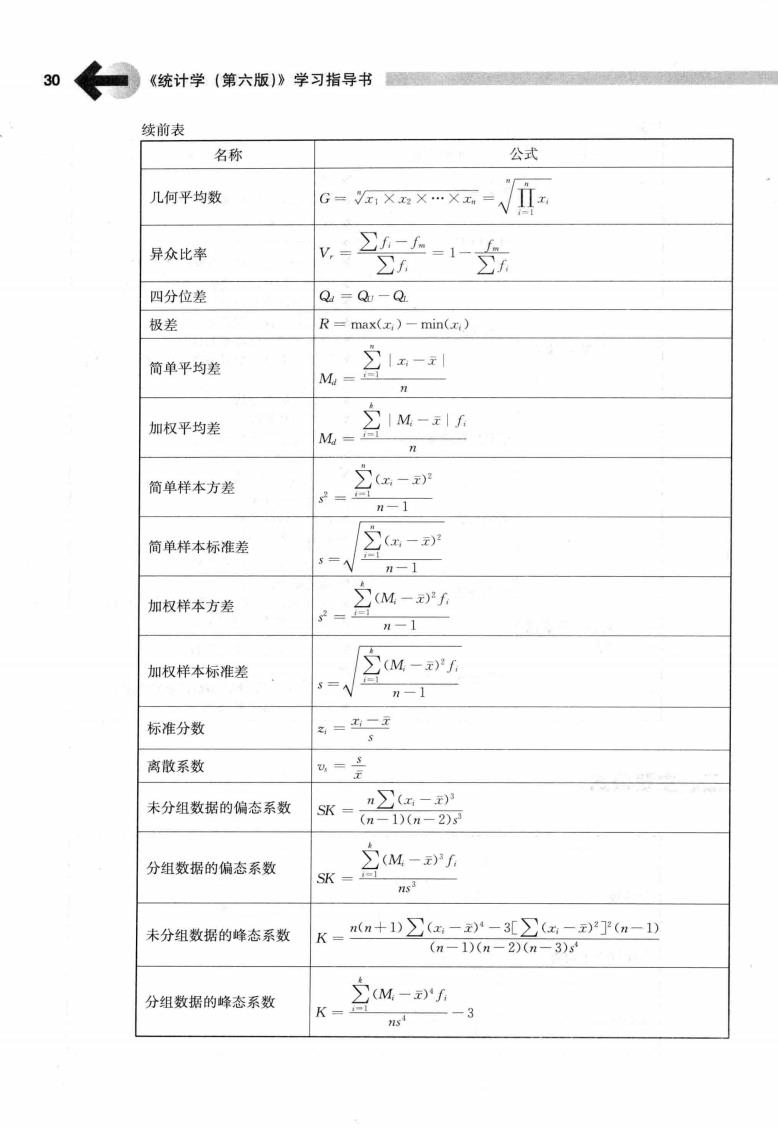 30 《统计学（第六版）》学习指导书
续前表
名称 公式
几何平均数 G = ⁿ√(x₁×x₂×⋯×xₙ) = ⁿ√(∏ᵢ₌₁ⁿ xᵢ)
异众比率 Vᵣ = (∑fᵢ − fₘ)/∑fᵢ = 1 − fₘ/∑fᵢ
四分位差 Q_d = Q_U − Q_L
极差 R = max(xᵢ) − min(xᵢ)
简单平均差 M_d = ∑ᵢ₌₁ⁿ |xᵢ − x̄| / n
加权平均差 M_d = ∑ᵢ₌₁ᵏ |Mᵢ − x̄| fᵢ / n
简单样本方差 s² = ∑ᵢ₌₁ⁿ (xᵢ − x̄)² / (n−1)
简单样本标准差 s = √(∑ᵢ₌₁ⁿ (xᵢ − x̄)² / (n−1))
加权样本方差 s² = ∑ᵢ₌₁ᵏ (Mᵢ − x̄)² fᵢ / (n−1)
加权样本标准差 s = √(∑ᵢ₌₁ᵏ (Mᵢ − x̄)² fᵢ / (n−1))
标准分数 zᵢ = (xᵢ − x̄)/s
离散系数 vₛ = s/x̄
未分组数据的偏态系数 SK = n∑(xᵢ − x̄)³ / ((n−1)(n−2)s³)
分组数据的偏态系数 SK = ∑ᵢ₌₁ᵏ (Mᵢ − x̄)³ fᵢ / (ns³)
未分组数据的峰态系数 K = (n(n+1)∑(xᵢ − x̄)⁴ − 3[∑(xᵢ − x̄)²]²(n−1)) / ((n−1)(n−2)(n−3)s⁴)
分组数据的峰态系数 K = ∑ᵢ₌₁ᵏ (Mᵢ − x̄)⁴ fᵢ / (ns⁴) − 3